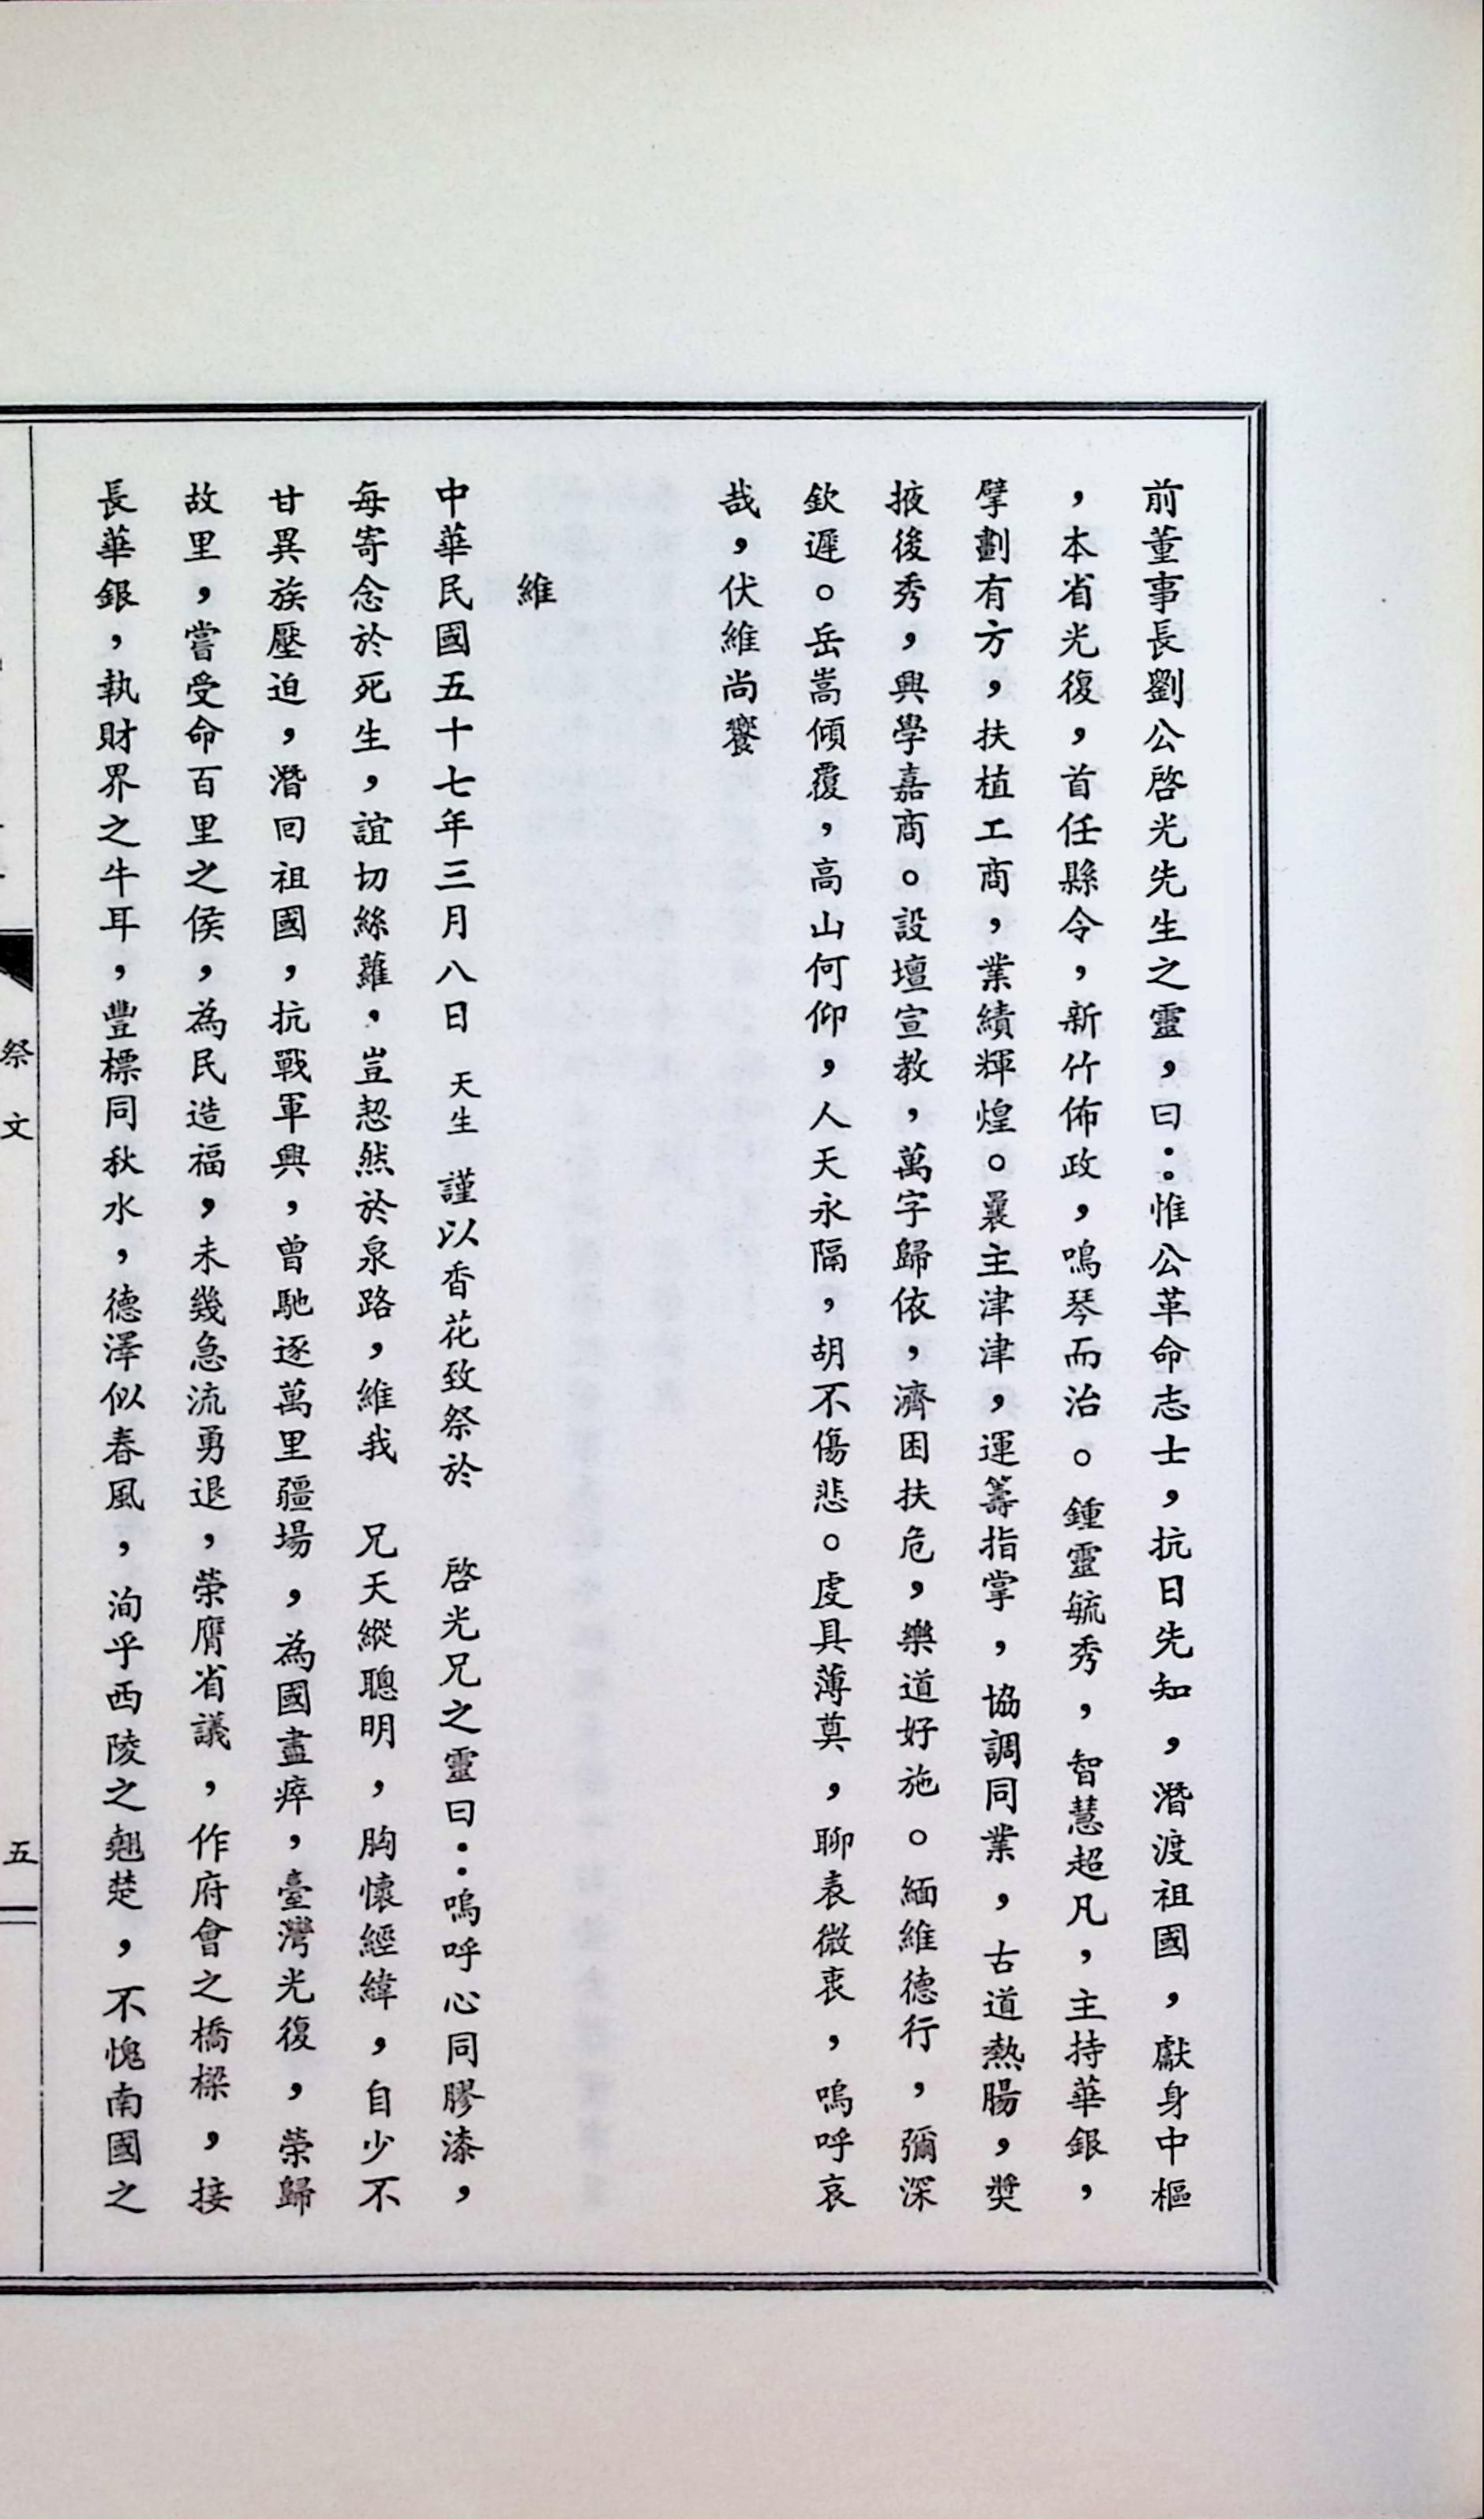 前董事長劉公啓光先生之靈，曰：惟公革命志士，抗日先知，潛渡祖國，獻身中樞
，本省光復，首任縣令，新竹佈政，鳴琴而治。鍾靈毓秀，智慧超凡，主持華銀，
擘劃有方，扶植工商，業績輝煌。曩主津津，運籌指掌，協調同業，古道熱腸，獎
掖後秀，興學嘉商。設壇宣教，萬字歸依，濟困扶危，樂道好施。緬維德行，彌深
欽遲。岳嵩傾覆，高山何仰，人天永隔，胡不傷悲。虔具薄奠，聊表微衷，嗚呼哀
哉，伏維尚饗
維
中華民國五十七年三月八日　天生　謹以香花致祭於　啓光兄之靈曰：嗚呼心同膠漆，
每寄念於死生，誼切絲蘿，豈恝然於泉路，維我　兄天縱聰明，胸懷經緯，自少不
甘異族壓迫，潛回祖國，抗戰軍興，曾馳逐萬里疆場，為國盡瘁，臺灣光復，榮歸
故里，嘗受命百里之侯，為民造福，未幾急流勇退，榮膺省議，作府會之橋樑，接
長華銀，執財界之牛耳，豐標同秋水，德澤似春風，洵乎西陵之翹楚，不愧南國之
祭文
五